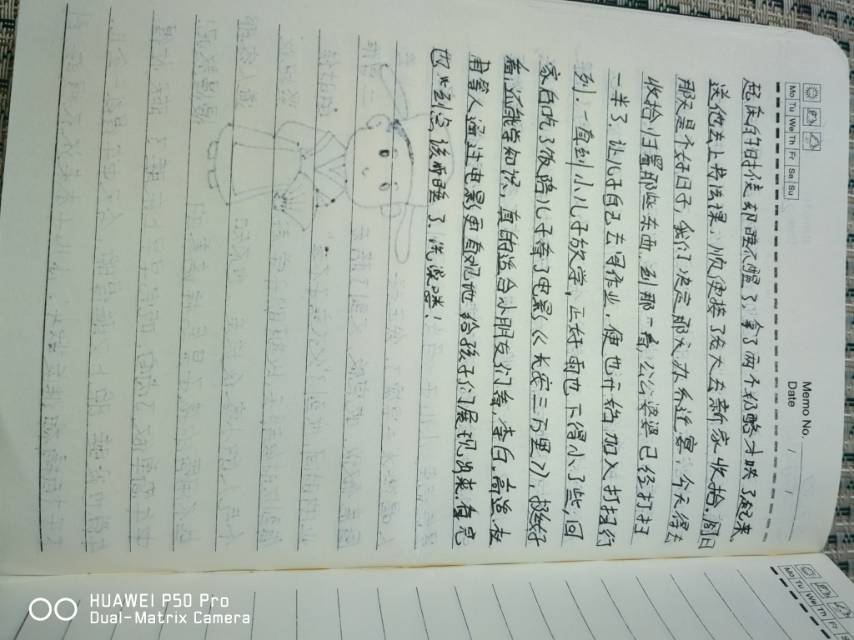 Memo No.
Date / /
Mo Tu We Th Fr Sa Su
起床的时候却睡不醒了，拿了两个奶酪才哄了起来，
送他去上书法课，顺便接了老大去新家收拾。周日
那天是个好日子，我们决定那天办乔迁宴，今天得去
收拾归置那些东西。到那一看，公公婆婆已经打扫
一半了，让儿子自己去写作业，便也开始加入打扫行
列。一直到小儿子放学，正好雨也下得小了些，回
家自吃了饭陪儿子看了电影《长安三万里》，挺好
看，还能学知识，真的适合小朋友们看，李白，高适，杜
甫等人通过电影更直观地给孩子们展现出来。看完
也少到点该睡了，洗漱喽！
Mo Tu We Th Fr
HUAWEI P50 Pro
Dual-Matrix Camera